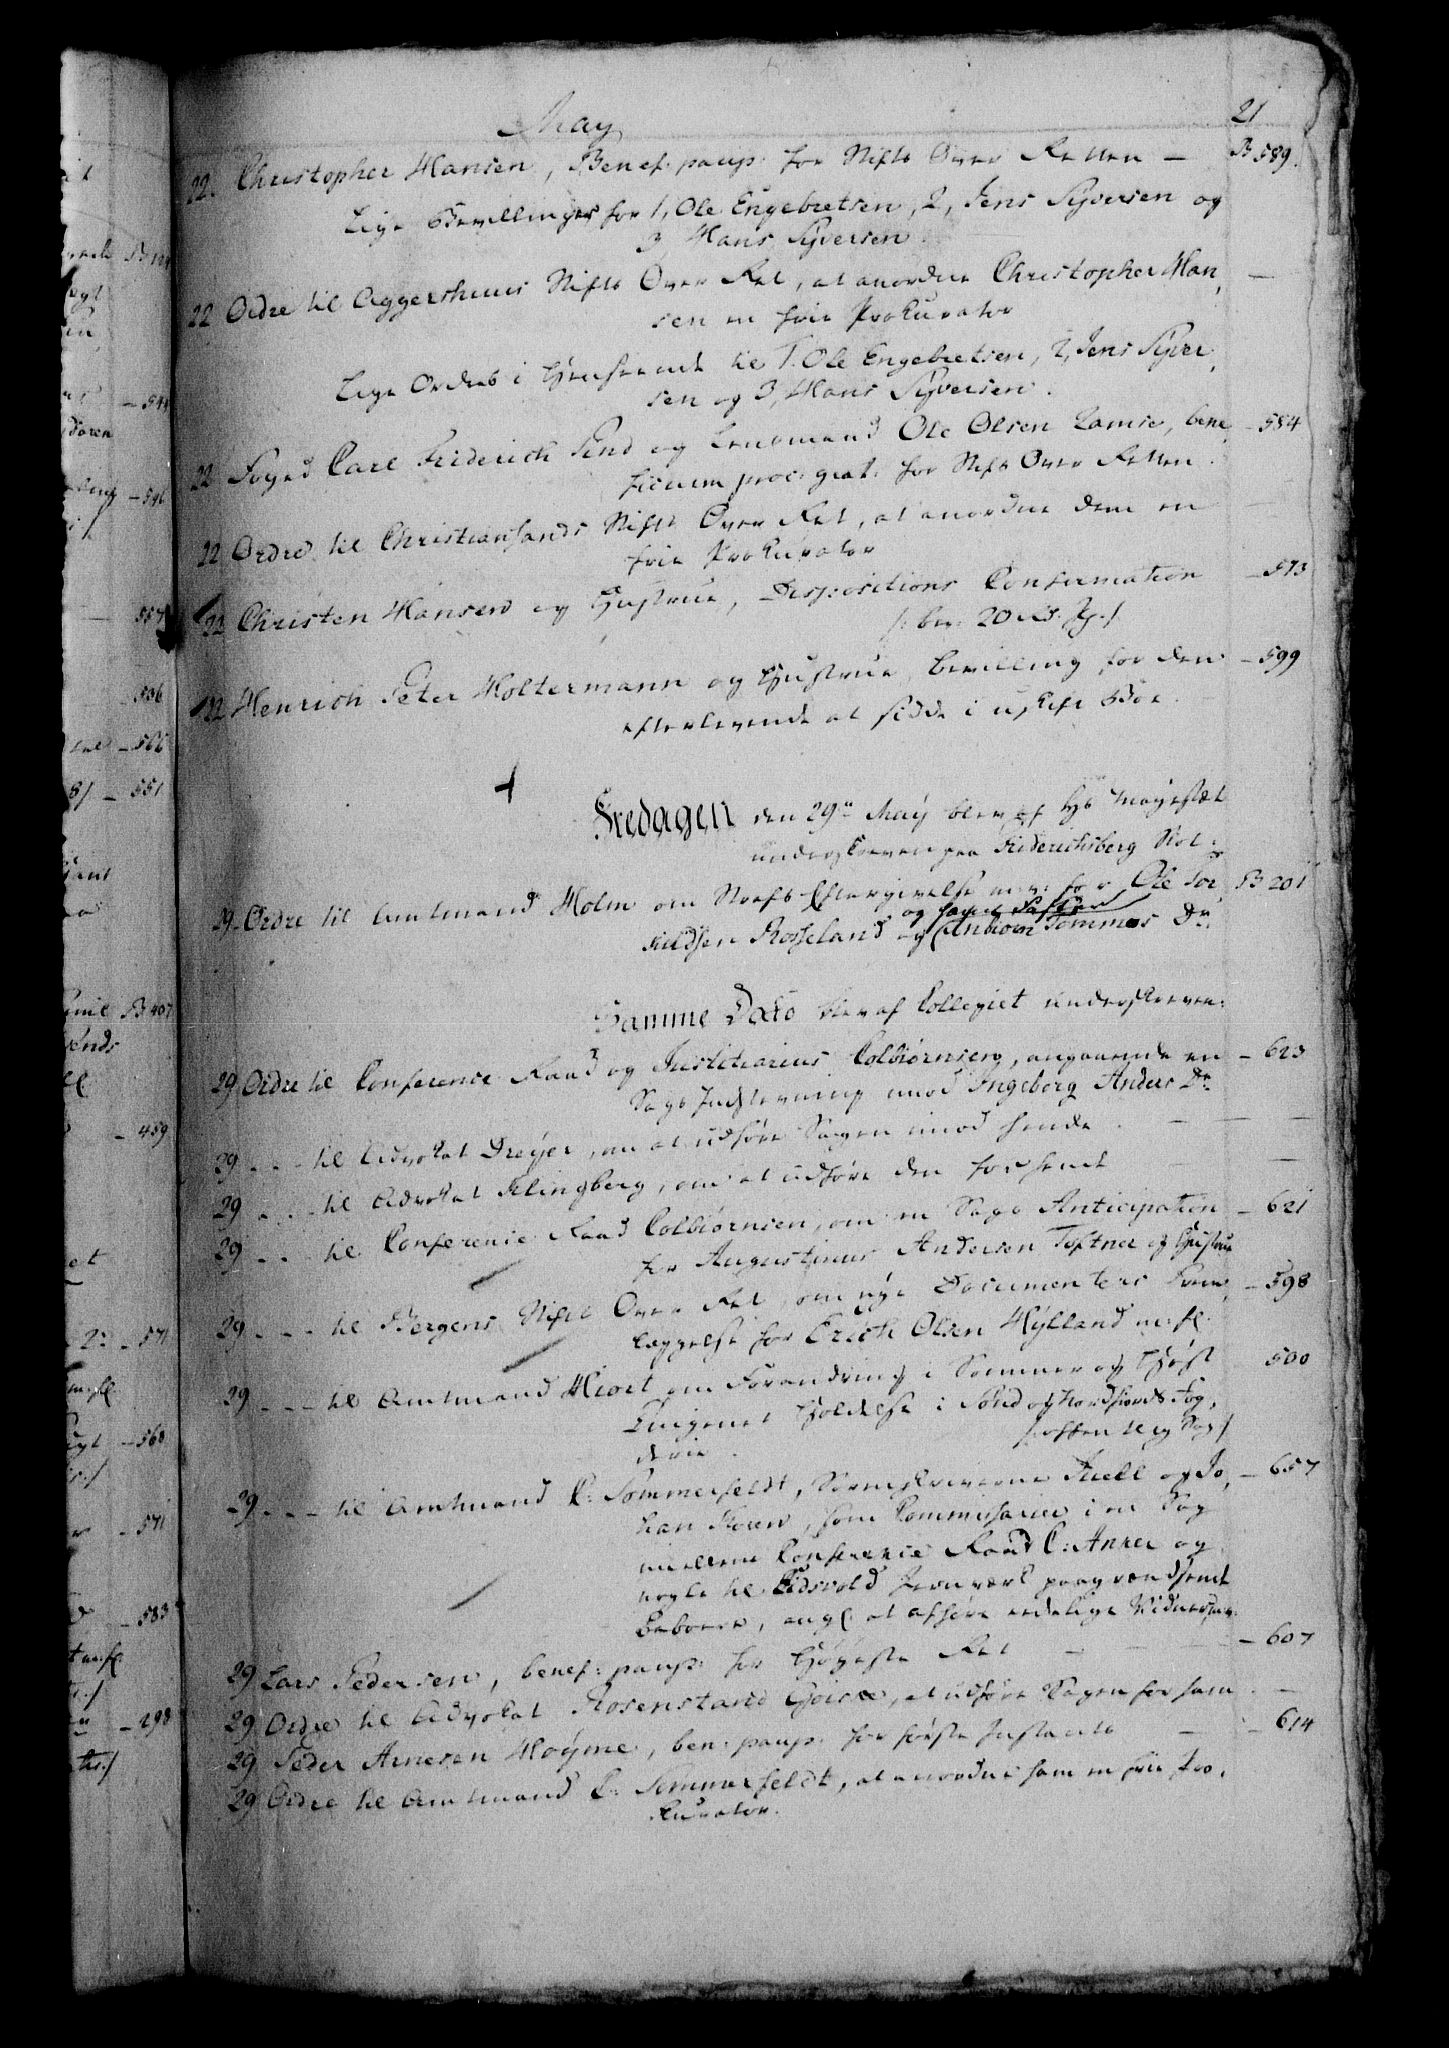 May
21
22. Christopher Hansen, Benef: paup: for Stifts Over Retten — B 589.
Lige Bevillinger for 1, Ole Engebretsen, 2, Jens Syversen og
3, Hans Syversen.
22 Ordre til Aggershuus Stifts Over Ret, at anordne Christopher Han, —
sen en frie Prokurator
Lige Ordres i Henseende til 1. Ole Engebretsen, 2, Jens Syver,
sen og 3, Hans Syversen.
22 Foged Carl Friderich og Lensmand Ole Olsen Lamse, bene, — 584
ficium proc: grat: for Stifts Over Retten.
22 Ordre til Christiansands Stifts Over Ret, at anordne dem en
frie Prokurator
22 Christen Hansen og Hustrue, Dispositions Confirmation — 573
/: ber: 20 /
22 Henrich Peter Holtermann og Hustrue, bevilling for den — 599
efterlevende at sidde i uskift Boe.
Fredagen den 29de May blev af Hs Mayestæt
underskreven paa Friderichsberg Slot:
29. Ordre til Amtmand Holm om Strafs Eftergivelse m: v: for Ole Tor, B 201
kildsen Rosseland og Anbiørn Tommes Dr:
Samme Dato blev af Collegiet underskreven:
29 Ordre til Conference Raad og Justitiarius Colbiørnsen, angaaende en — 623
Sags Indstevning imod Ingeborg Anders Dr:
29 . . . til Advokat Dreyer, om at udføre Sagen imod hende. — — —
29 . . . til Advokat Klingberg, om at udføre den for hende — —
29 . . . til Conference Raad Colbiørnsen, om en Sags Anticipation — 621
for Augustinus Andersen Toftner og Hustrue
29 . . . til Bergens Stifts Over Ret, om nye Documenters Frem, — 598
læggelse for Erich Olsen Hylland m: fl.
29 . . . til Amtmand Hiort om Forandring i Sommer og Høst 500
Tingenes Holdelse i Sønd og Nordfiords Fog,
derie.
29 . . . til Amtmand C: Sommerfeldt, Sorenskriverne Juell og Jo, — 657
han Koren, som Commissarier i en Sag
imellem Conference Raad C: Anker og
nogle til Eidsvold Jernværk paagrændsende
Beboere, ang: at afhøre endelige Vidner
29 Lars Pedersen, benef: paup: for Høyeste Ret — — — 607
29 Ordre til Advokat Rosenstand Goiske, at udføre Sagen for ham. —
29 Peder Arnesen Høyme, ben: paup: for første Instants — — 614
29 Ordre til Amtmand C: Sommerfeldt, at anordne ham en frie Pro,
kurator.